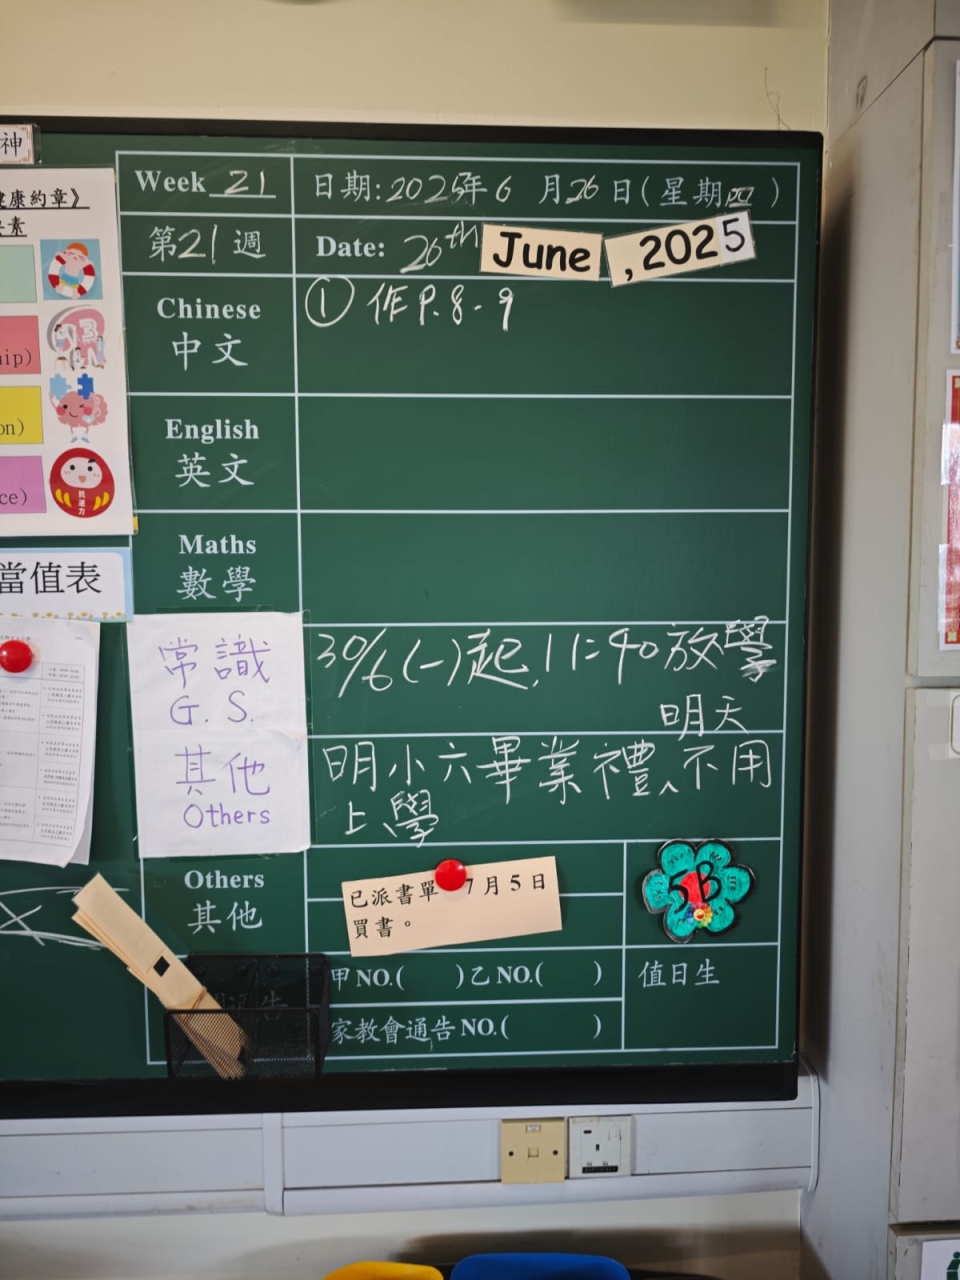 神
健康約章》
素
hip)
on)
ce)
抗逆力
當值表
Week 21
日期:2025年6 月26日(星期四)
第21週
Date: 26th June ,2025
Chinese
中文
① 作P.8-9
English
英文
Maths
數學
常識
G.S.
30/6(一)起,11:40放學
明天
其他
Others
明小六畢業禮,不用
上學
Others
其他
已派書單 7月5日
買書。
5B
甲NO.( )乙NO.( )
值日生
家教會通告NO.( )